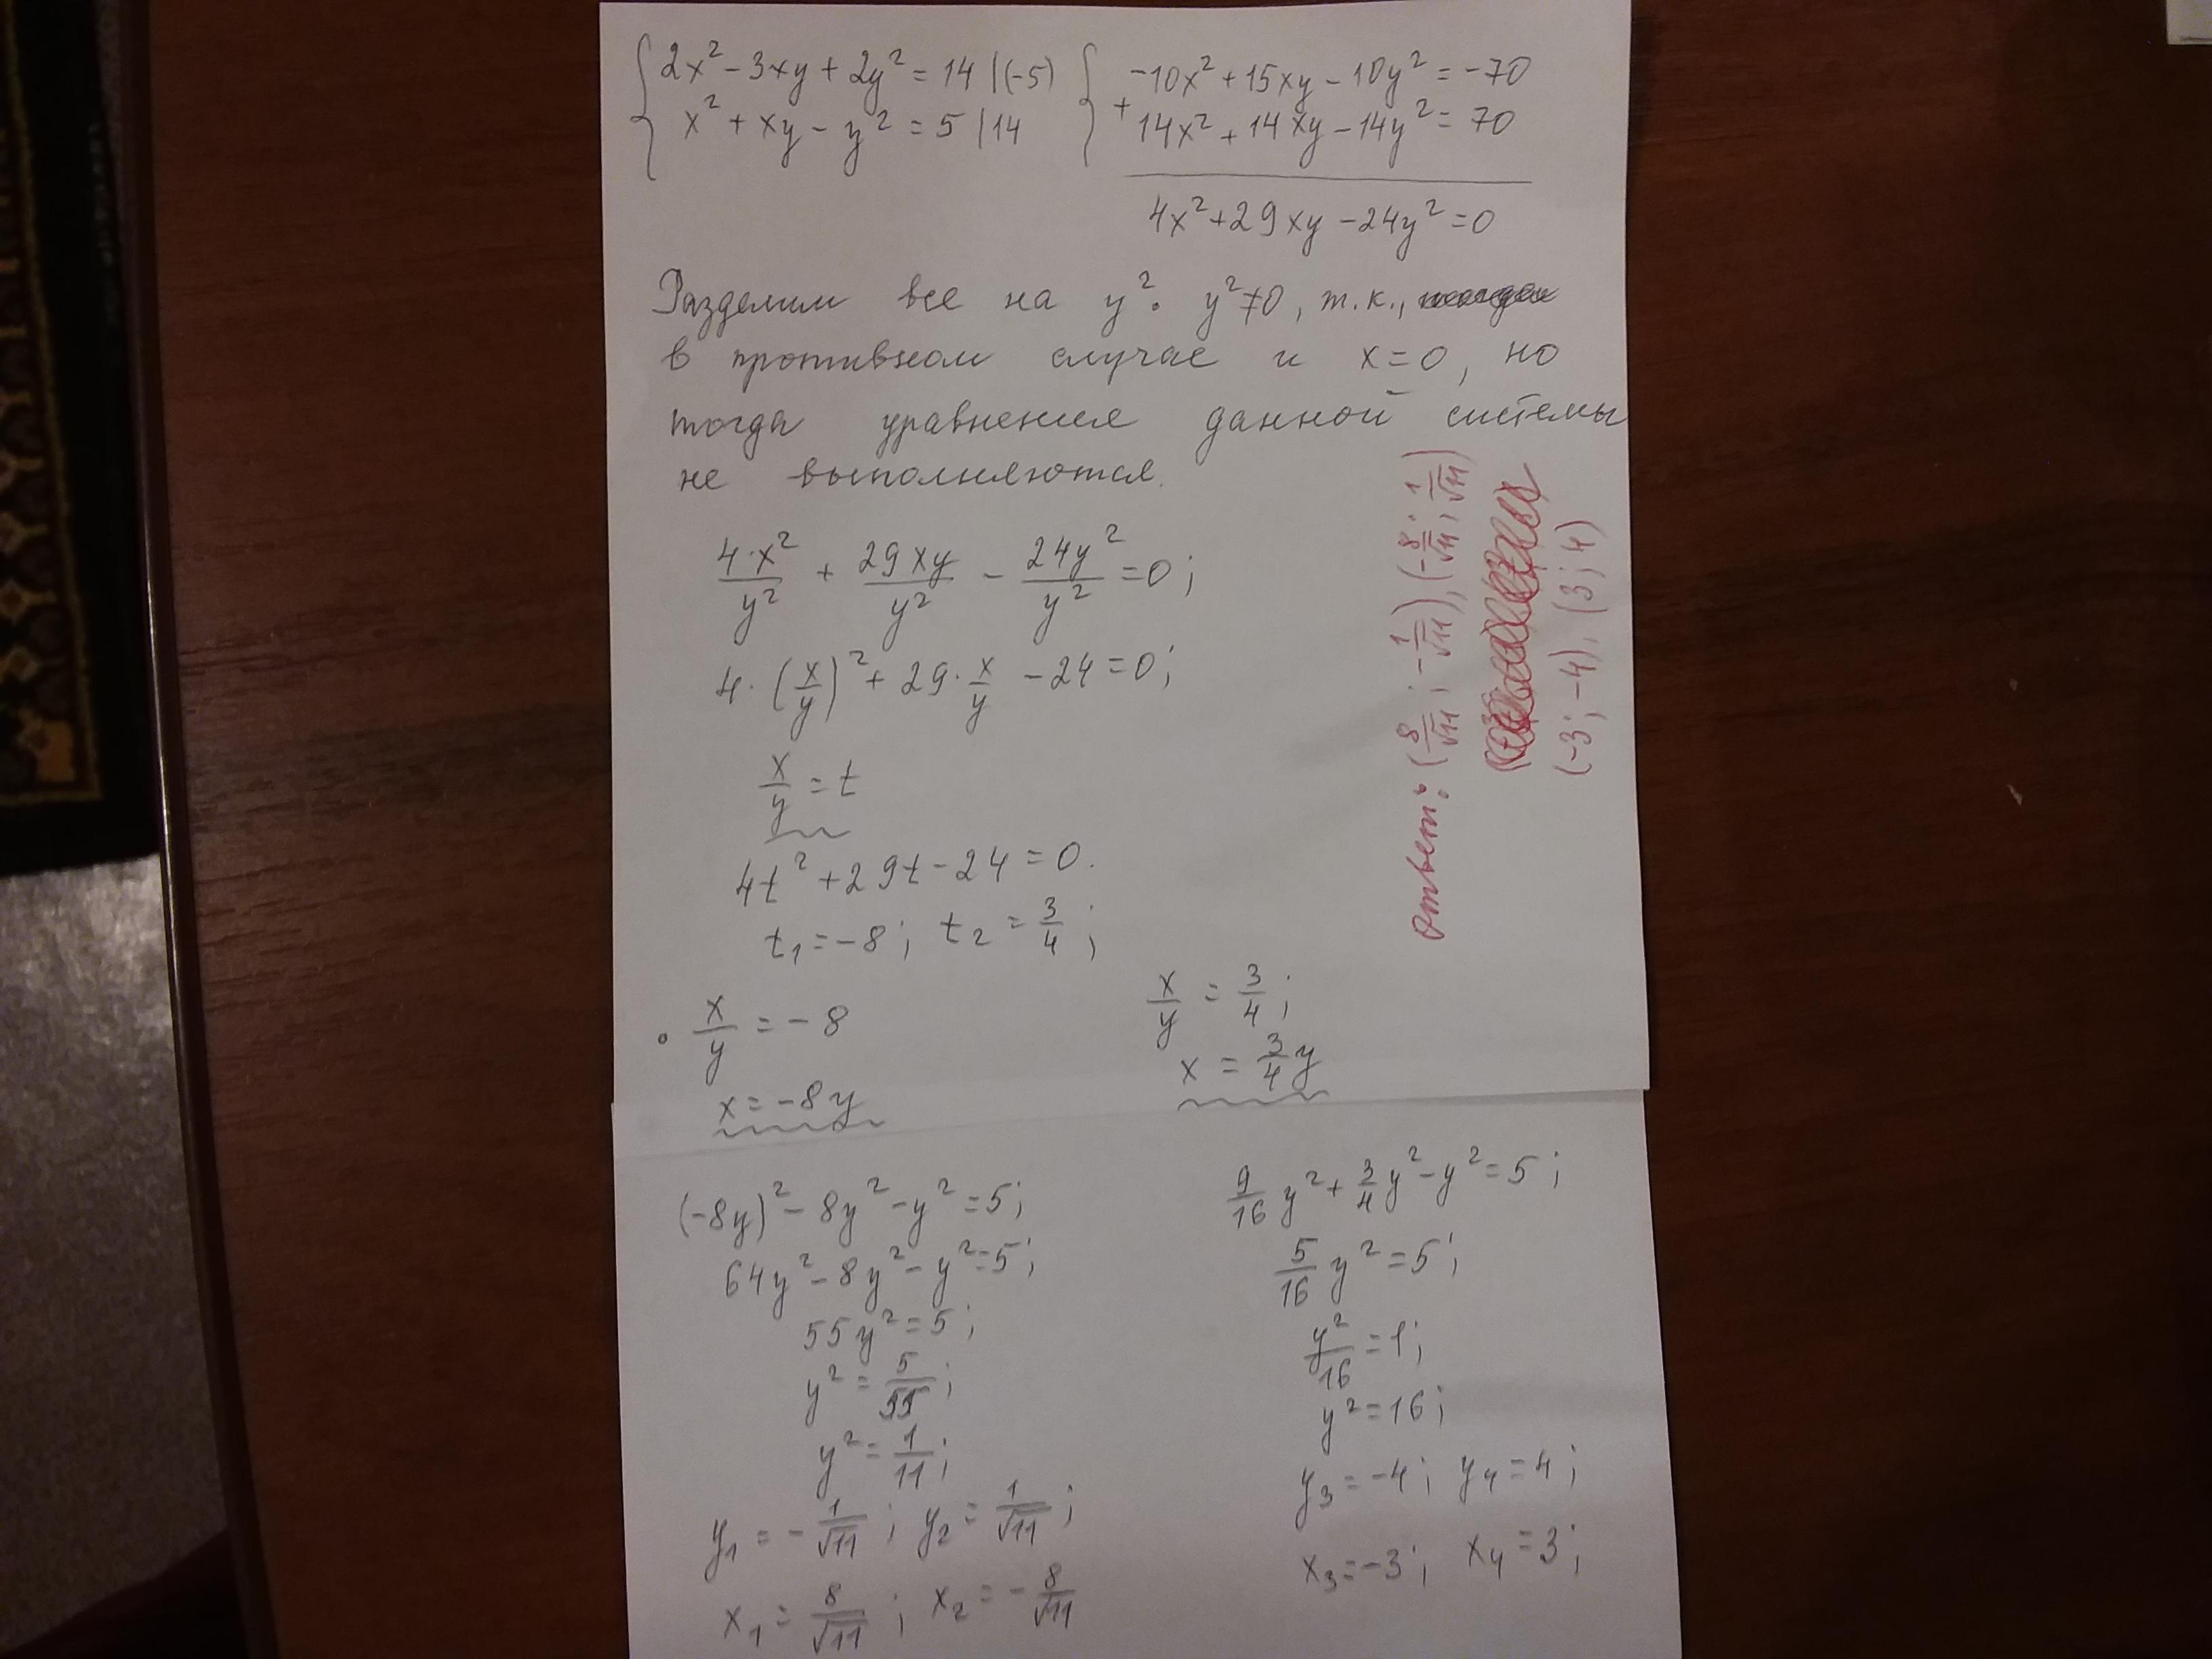 2x² - 3xy + 2y² = 14 |(-5)
x² + xy - y² = 5 |14
-10x² + 15xy - 10y² = -70
+
14x² + 14xy - 14y² = 70
4x² + 29xy - 24y² = 0
Разделим все на y². y² ≠ 0, т.к.,
в противном случае и x = 0, но
тогда уравнения данной системы
не выполняются.
4·x²/y² + 29xy/y² - 24y²/y² = 0;
4·(x/y)² + 29·x/y - 24 = 0;
x/y = t
4t² + 29t - 24 = 0.
t₁ = -8; t₂ = 3/4;
x/y = -8
x = -8y
(-8y)² - 8y² - y² = 5;
64y² - 8y² - y² = 5;
55y² = 5;
y² = 5/55;
y² = 1/11;
y₁ = -1/√11; y₂ = 1/√11;
x₁ = 8/√11; x₂ = -8/√11
x/y = 3/4;
x = 3/4y
9/16y² + 3/4y² - y² = 5;
5/16y² = 5;
y²/16 = 1;
y² = 16;
y₃ = -4; y₄ = 4;
x₃ = -3; x₄ = 3;
Ответ: (8/√11; -1/√11), (-8/√11; 1/√11)
(-3; -4), (3; 4)